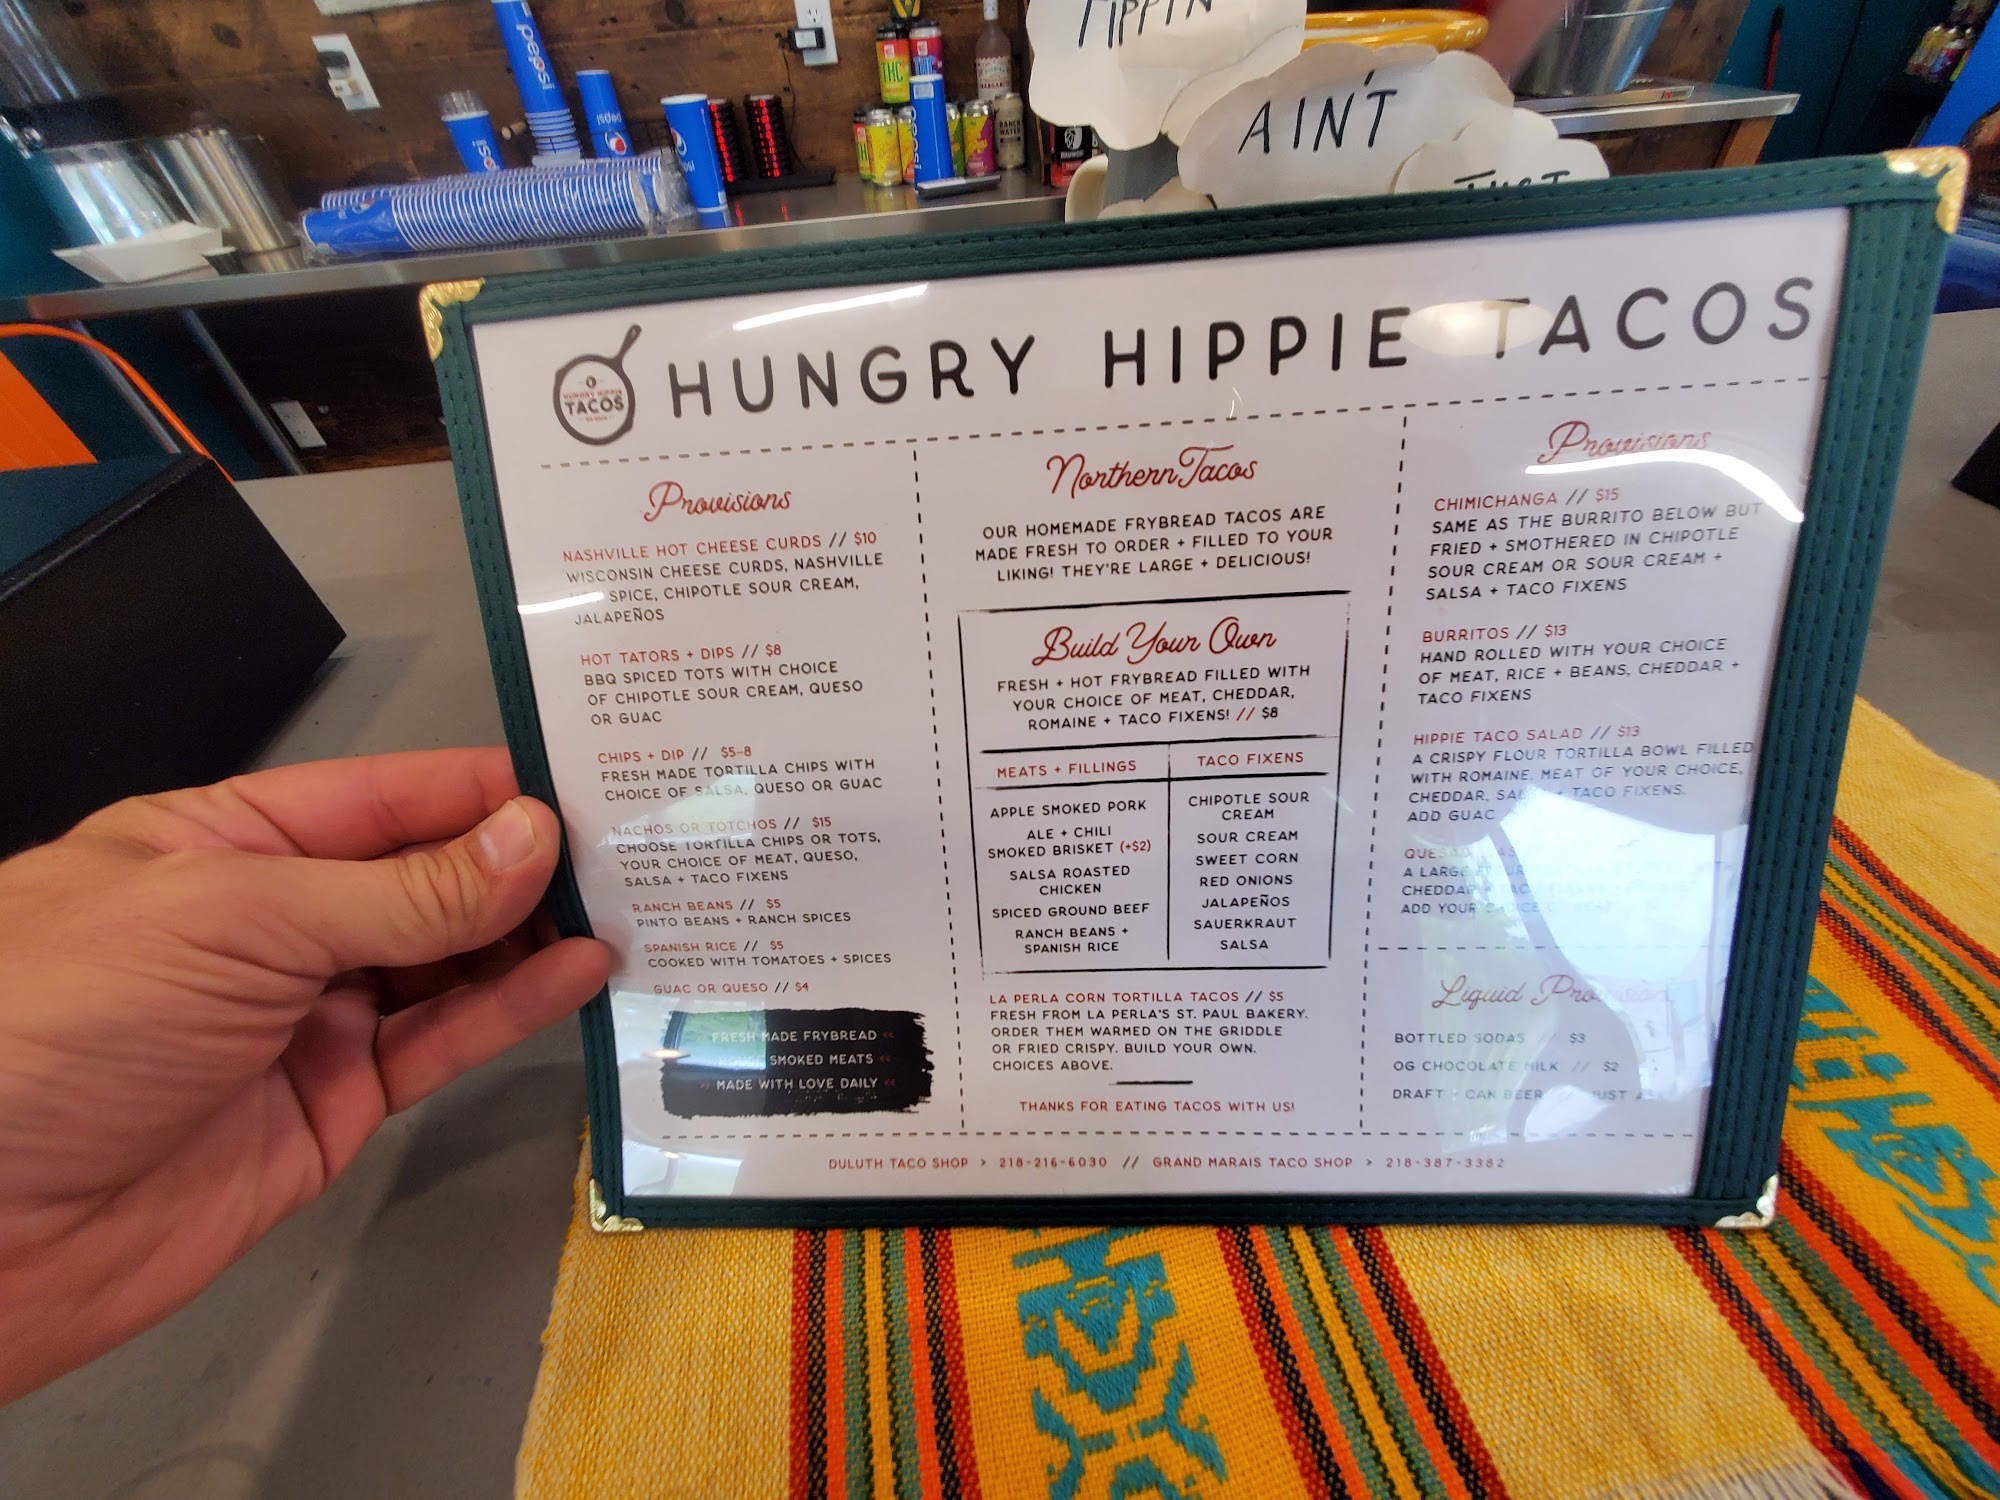 pepsi
pepsi
pepsi
THC
RANCH
WATER
TIPPIN'
AIN'T
HUNGRY HIPPIE
TACOS
HUNGRY HIPPIE TACOS
Provisions
NASHVILLE HOT CHEESE CURDS // $10
WISCONSIN CHEESE CURDS, NASHVILLE
SPICE, CHIPOTLE SOUR CREAM,
JALAPEÑOS
HOT TATORS + DIPS // $8
BBQ SPICED TOTS WITH CHOICE
OF CHIPOTLE SOUR CREAM, QUESO
OR GUAC
CHIPS + DIP // $5-8
FRESH MADE TORTILLA CHIPS WITH
CHOICE OF SALSA, QUESO OR GUAC
NACHOS OR TOTCHOS // $15
CHOOSE TORTILLA CHIPS OR TOTS,
YOUR CHOICE OF MEAT, QUESO,
SALSA + TACO FIXENS
RANCH BEANS // $5
PINTO BEANS + RANCH SPICES
SPANISH RICE // $5
COOKED WITH TOMATOES + SPICES
GUAC OR QUESO // $4
FRESH MADE FRYBREAD <<
SMOKED MEATS <<
>> MADE WITH LOVE DAILY <<
Northern Tacos
OUR HOMEMADE FRYBREAD TACOS ARE
MADE FRESH TO ORDER + FILLED TO YOUR
LIKING! THEY'RE LARGE + DELICIOUS!
Build Your Own
FRESH + HOT FRYBREAD FILLED WITH
YOUR CHOICE OF MEAT, CHEDDAR,
ROMAINE + TACO FIXENS! // $8
MEATS + FILLINGS
APPLE SMOKED PORK
ALE + CHILI
SMOKED BRISKET (+$2)
SALSA ROASTED
CHICKEN
SPICED GROUND BEEF
RANCH BEANS +
SPANISH RICE
TACO FIXENS
CHIPOTLE SOUR
CREAM
SOUR CREAM
SWEET CORN
RED ONIONS
JALAPEÑOS
SAUERKRAUT
SALSA
LA PERLA CORN TORTILLA TACOS // $5
FRESH FROM LA PERLA'S ST. PAUL BAKERY.
ORDER THEM WARMED ON THE GRIDDLE
OR FRIED CRISPY. BUILD YOUR OWN.
CHOICES ABOVE.
THANKS FOR EATING TACOS WITH US!
Provisions
CHIMICHANGA // $15
SAME AS THE BURRITO BELOW BUT
FRIED + SMOTHERED IN CHIPOTLE
SOUR CREAM OR SOUR CREAM +
SALSA + TACO FIXENS
BURRITOS // $13
HAND ROLLED WITH YOUR CHOICE
OF MEAT, RICE + BEANS, CHEDDAR +
TACO FIXENS
HIPPIE TACO SALAD // $13
A CRISPY FLOUR TORTILLA BOWL FILLED
WITH ROMAINE, MEAT OF YOUR CHOICE,
CHEDDAR, + TACO FIXENS.
ADD GUAC
A LARGE
CHEDDAR
ADD YOUR CHOICE OF MEAT
Liquid Provisions
BOTTLED SODAS $3
OG CHOCOLATE MILK // $2
DRAFT + CAN BEER // JUST
DULUTH TACO SHOP > 218-216-6030 // GRAND MARAIS TACO SHOP > 218-387-3382